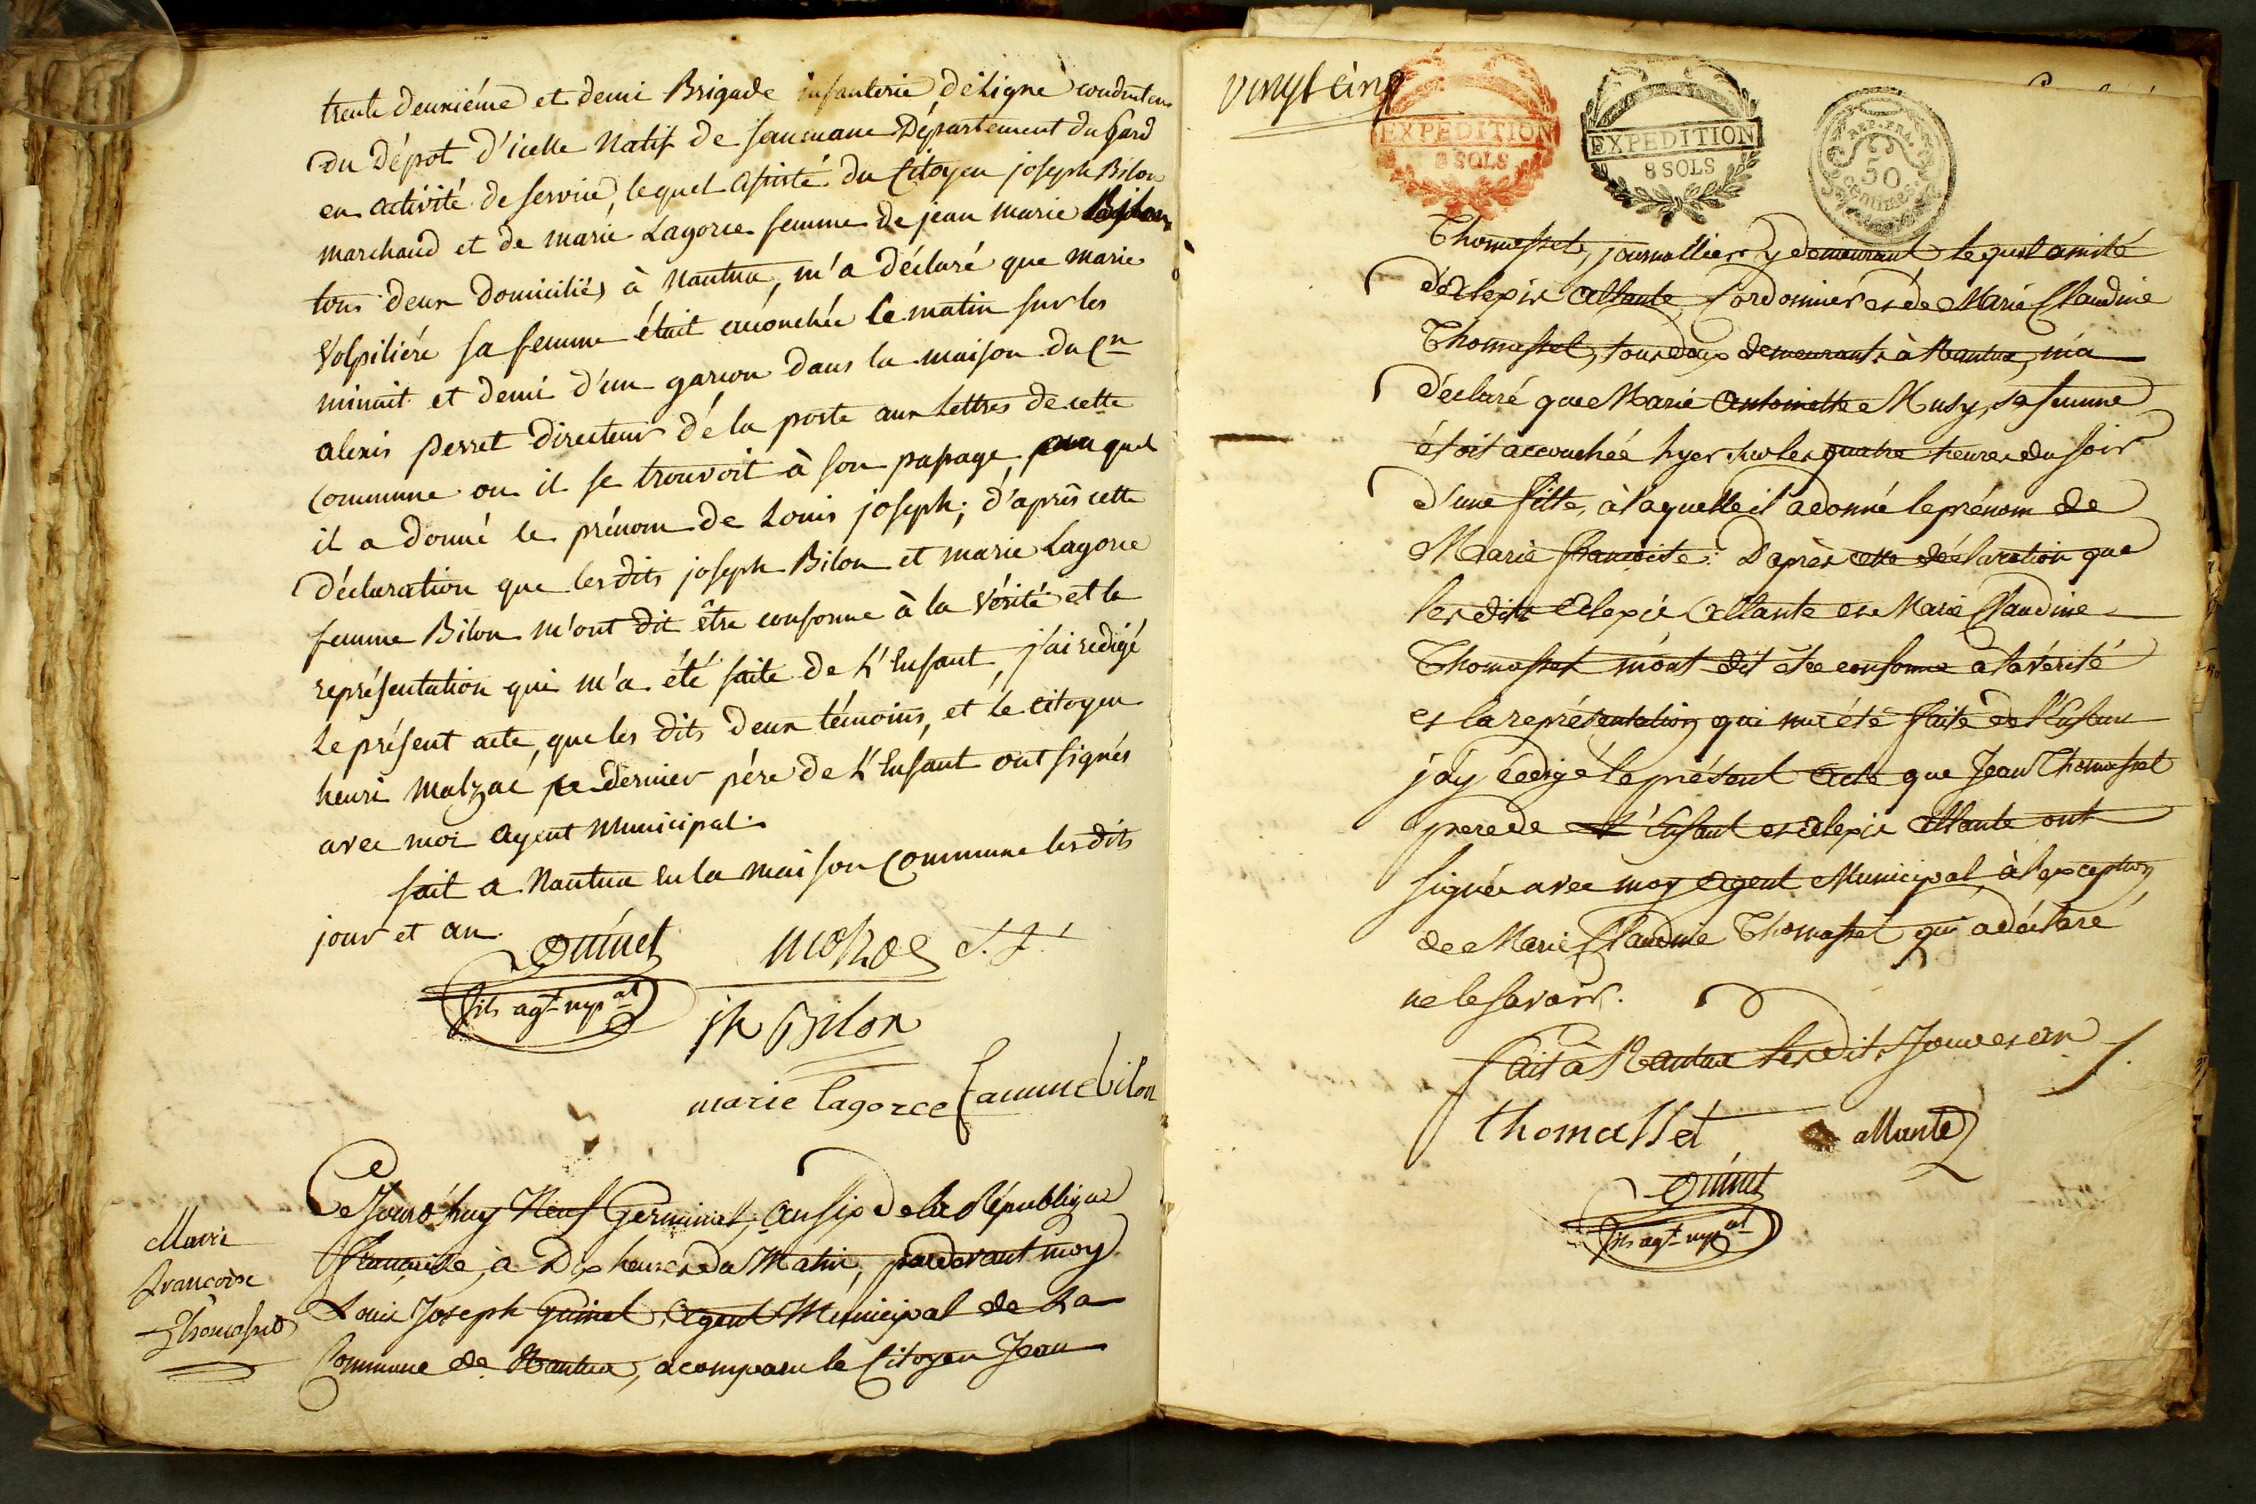 trente deuxiéme et demi Brigade infanterie de Ligne conducteur
du Dépot d'icelle Natif de saumane Département du Gard
en activité de service, lequel assisté du Citoyen joseph Bilon
marchand et de marie Lagorce femme de jean marie Bilon
tous deux domiciliés à Nantua, m'a déclaré que marie
Volpiliére sa femme était accouchée le matin sur les
minuit et demi d'un garçon dans la maison du Cn
alexis perret directeur de la poste aux Lettres de cette
commune ou il se trouvoit à son passage, auquel
il a donné le prénom de Louis joseph; d'après cette
déclaration que lesdits joseph Bilon et marie Lagorce
femme Bilon m'ont dit être conforme à la Vérité et la
représentation qui m'a été faite de L'Enfant, j'ai redigé
Le présent acte, que les dits deux témoins, et le citoyen
henri malzac ce dernier pére de L'Enfant ont signés
avec moi agent Municipal.
fait a Nantua en la maison Commune lesdits
jour et an.
Guinet
fils agt mpal
jh Bilon
marie lagorce famme bilon
Marie
francoise
Thomasset
Cejourd'huy Neuf Germinal, an six de la République
française, à Dix heures du Matin, pardevant moy
Louis Joseph Guinet, Agent Municipal de la
Commune de Nantua, acomparu le Citoyen Jean
vingt cinq
EXPEDITION
8 SOLS
EXPEDITION
8 SOLS
REP. FRA.
50
centimes
Thomasset, journallier y demeurant lequel assisté
d'Alexis Allante, Cordonnier et de Marie Claudine
Thomasset, tous deux demeurants à Nantua, m'a
déclaré que Marie Antoinette Musy, sa femme
étoit accouchée hyer sur les quatre heures du soir
d'une fille, à laquelle il a donné le prénom de
Marie francoise: D'après cette déclaration que
lesdits Alexis Allante et Marie Claudine
Thomasset m'ont dit être conforme a la vérité
et la représentation qui m'a été faite de l'Enfant
j'ay rédigé le présent Acte que Jean Thomasset
pere de L'Enfant et Alexis Allante ont
signés avec moy Agent Municipal, à l'exception
de Marie Claudine Thomasset qui a déclaré
ne le savoir.
fait à Nantua lesdits Jour et an
thomasset allante
Guinet
fils agt mpal